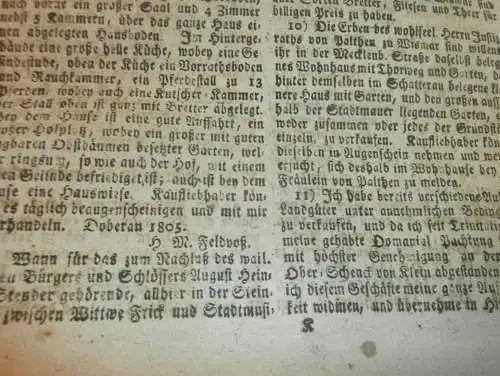 nach vorne ein großer Saal und 4 Zimmer
nebst 5 Kammern, über das ganze Haus ei-
nen abgelegten Hausboden. Im Hinterge-
bäude eine große helle Küche, wobey eine Ge-
sindestube, oben der Küche ein Vorrathsboden
und Rauchkammer, ein Pferdestall zu 13
Pferden, wobey auch eine Kutscher-Kammer,
der Stall oben ist ganz mit Bretter abgelegt.
Bey dem Hause ist eine gute Auffahrt, ein
großer Hofplatz, wobey ein großer mit guten
tragbaren Obstbäumen besetzter Garten, wel-
cher ringsum, so wie auch der Hof, mit einem
Gelinde befriediget ist; auch ist bey dem
Hause eine Hauswiese. Kaufliebhaber kön-
nen es täglich beaugenscheinigen und mit mir
verhandeln. Doberan 1805.
H. M. Feldvoß.
Wann für das zum Nachlaß des wail.
Bürgers und Schlössers August Hein-
Stender gehörende, allhier in der Stein-
zwischen Wittwe Frick und Stadtmusi-
billigen Preis zu haben.
10) Die Erben des wohlsel. Herrn Justiz-
raths von Palthen zu Wismar sind willens
ihr in der Mecklenb. Straße daselbst beleg-
nes Wohnhaus mit Thorweg und Garten,
hinter demselben im Schatterau belegene klei-
nere Haus mit Garten, und den großen auß
halb der Stadtmauer liegenden Garten,
weder zusammen oder jedes der Grundstücke
einzeln, zu verkaufen. Kaufliebhaber können
dieselben in Augenschein nehmen und werden
ersucht, sich deshalb im Wohnhause bey
Fräulein von Palthen zu melden.
11) Ich habe bereits verschiedene Auf
Landgüter unter annehmlichen Beding
zu verkaufen, und da ich seit Trinitatis
meine gehabte Domanial Pachtung
mit höchster Genehmigung an den
Ober-Schenck von Klein abgestanden
ich diesem Geschäfte meine ganze Auf
keit widmen, und übernehme in Hi
K